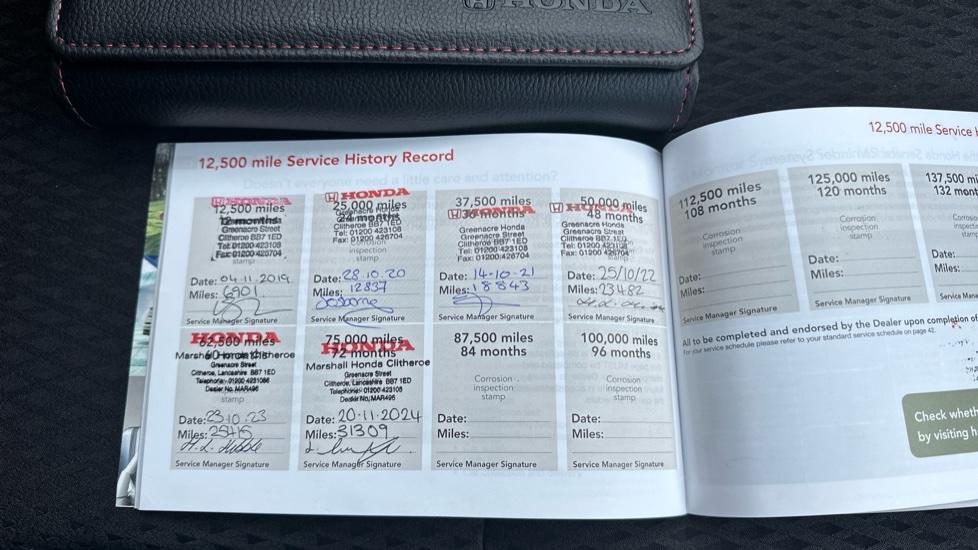 HONDA
12,500 mile Service History Record
Doesn't everyone need a little care and attention?
HONDA
12,500 miles
12 months
Greenacre Street
Clitheroe BB7 1ED
Tel: 01200 423108
Fax: 01200 426704
stamp
Date: 04.11.2019
Miles: 6901
Service Manager Signature
HONDA
25,000 miles
Greenacre Honda
24 months
Clitheroe BB7 1ED
Tel: 01200 423108
Fax: 01200 426704
Corrosion
inspection
stamp
Date: 28.10.20
Miles: 12837
Service Manager Signature
37,500 miles
HONDA
36 months
Greenacre Honda
Greenacre Street
Clitheroe BB7 1ED
Tel: 01200 423108
Fax: 01200 426704
Date: 14-10-21
Miles: 18843
Service Manager Signature
50,000 miles
HONDA
48 months
Greenacre Honda
Greenacre Street
Clitheroe BB7 1ED
Tel: 01200 423108
Fax: 01200 426704
stamp
Date: 25/10/22
Miles: 23482
Service Manager Signature
HONDA
62,500 miles
Marshall Honda Clitheroe
60 months
Greenacre Street
Clitheroe, Lancashire BB7 1ED
Dealer No. MAR496
stamp
Date: 23.10.23
Miles:
Service Manager Signature
75,000 miles
HONDA
72 months
Marshall Honda Clitheroe
Greenacre Street
Clitheroe, Lancashire BB7 1ED
Telephone: 01200 423108
Dealer No. MAR496
Date: 20.11.2024
Miles: 31309
Service Manager Signature
87,500 miles
84 months
Corrosion
inspection
stamp
Date:
Miles:
Service Manager Signature
100,000 miles
96 months
Corrosion
inspection
stamp
Date:
Miles:
Service Manager Signature
12,500 mile Service
112,500 miles
108 months
Corrosion
inspection
stamp
Date:
Miles:
Service Manager Signature
125,000 miles
120 months
Corrosion
inspection
stamp
Date:
Miles:
Service Manager Signature
137,500 mi
132 mont
Date:
Miles:
Service Ma
All to be completed and endorsed by the Dealer upon completion of
For your service schedule please refer to your standard service schedule on page 42.
Check wheth
by visiting h